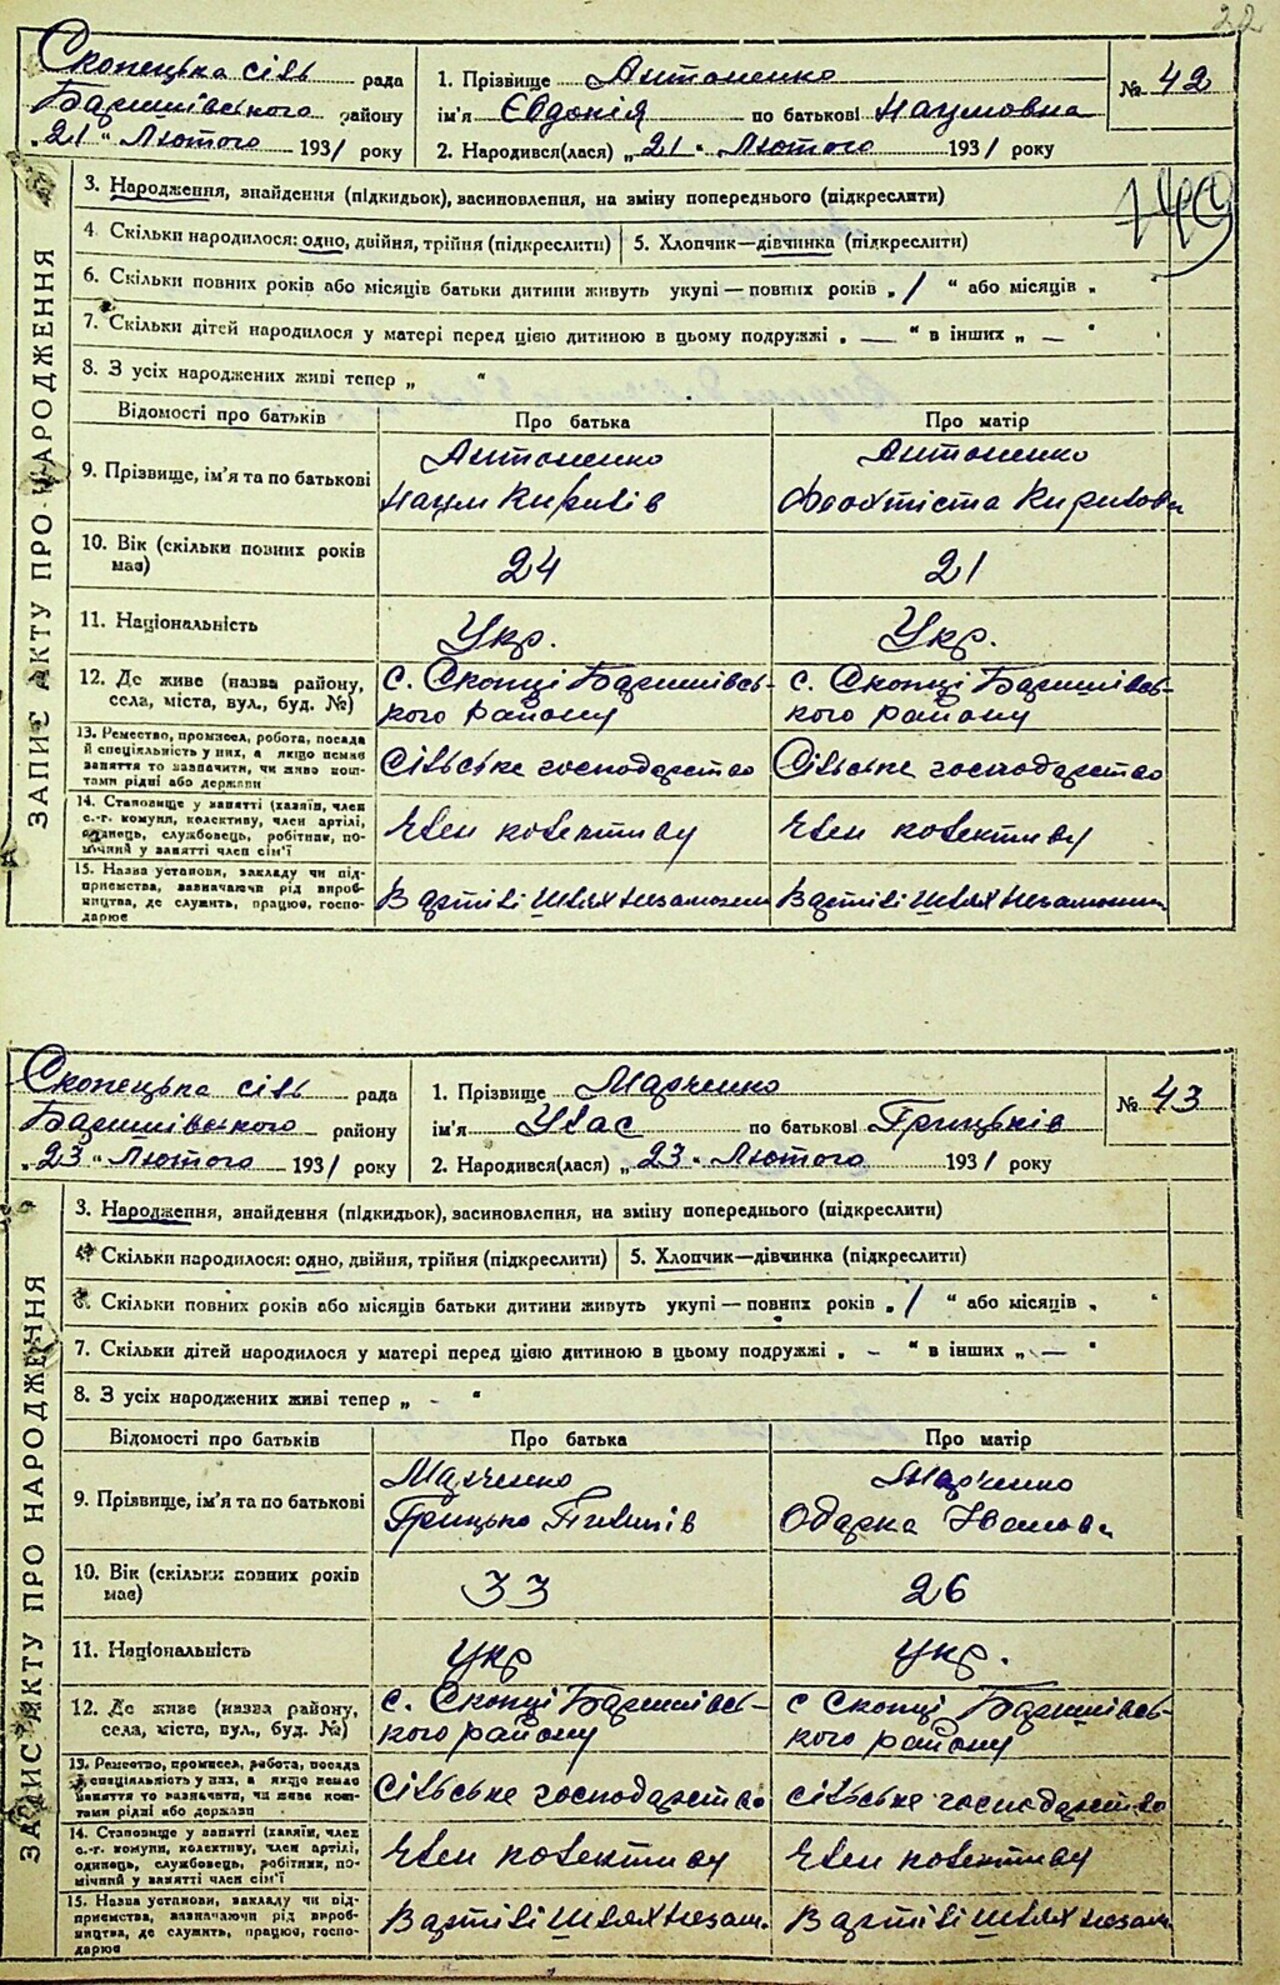 22
Скопецька сіль рада
Баришівського району
„21“ Лютого 1931 року
1. Прізвище Антоненко
ім'я Євдокія по батькові Наумовна
2. Народився(лася) „21“ Лютого 1931 року
№ 42
ЗАПИС АКТУ ПРО НАРОДЖЕННЯ
3. Народження, знайдення (підкидьок), засиновлення, на зміну попереднього (підкреслити)
4. Скільки народилося: одно, двійня, трійня (підкреслити) 5. Хлопчик—дівчинка (підкреслити)
6. Скільки повних років або місяців батьки дитини живуть укупі — повних років „1“ або місяців „ “
7. Скільки дітей народилося у матері перед цією дитиною в цьому подружжі „ — “ в інших „ — “
8. З усіх народжених живі тепер „ “
Відомості про батьків Про батька Про матір
9. Прізвище, ім'я та по батькові
Антоненко Антоненко
Наум Кирилів Феоктіста Кирилови
10. Вік (скільки повних років має) 24 21
11. Національність Укр. Укр.
12. Де живе (назва району, села, міста, вул., буд. №)
с. Скопці Баришівсь- с. Скопці Баришівсь-
кого району кого району
13. Ремество, промисел, робота, посада
й спеціяльність у них, а якщо немає
заняття то зазначити, чи живе кош-
тами рідні або держави
Сільське господарство Сільське господарство
14. Становище у занятті (хазяїн, член
с.-г. комуни, колективу, член артілі,
одинець, службовець, робітник, по-
мічний у занятті член сім'ї
Член колективу Член колективу
15. Назва установи, закладу чи під-
приємства, зазначаючи рід вироб-
ництва, де служить, працює, госпо-
дарює
В артілі Шлях незаможн В артілі Шлях незаможн
Скопецька сіль рада
Баришівського району
„23“ Лютого 1931 року
1. Прізвище Марченко
ім'я Улас по батькові Грицьків
2. Народився(лася) „23“ Лютого 1931 року
№ 43
ЗАПИС АКТУ ПРО НАРОДЖЕННЯ
3. Народження, знайдення (підкидьок), засиновлення, на зміну попереднього (підкреслити)
4. Скільки народилося: одно, двійня, трійня (підкреслити) 5. Хлопчик—дівчинка (підкреслити)
6. Скільки повних років або місяців батьки дитини живуть укупі — повних років „1“ або місяців „ “
7. Скільки дітей народилося у матері перед цією дитиною в цьому подружжі „ - “ в інших „ — “
8. З усіх народжених живі тепер „ - “
Відомості про батьків Про батька Про матір
9. Прізвище, ім'я та по батькові
Марченко Марченко
Грицько Пилипів Одарка Іванови
10. Вік (скільки повних років має) 33 26
11. Національність укр укр.
12. Де живе (назва району, села, міста, вул., буд. №)
с. Скопці Баришівсь- с Скопці Баришівсь-
кого району кого району
13. Ремество, промисел, робота, посада
й спеціяльність у них, а якщо немає
заняття то зазначити, чи живе кош-
тами рідні або держави
Сільське господарство сільське господарство
14. Становище у занятті (хазяїн, член
с.-г. комуни, колективу, член артілі,
одинець, службовець, робітник, по-
мічний у занятті член сім'ї
Член колективу Член колективу
15. Назва установи, закладу чи під-
приємства, зазначаючи рід вироб-
ництва, де служить, працює, госпо-
дарює
В артілі Шлях незам. В артілі Шлях незам